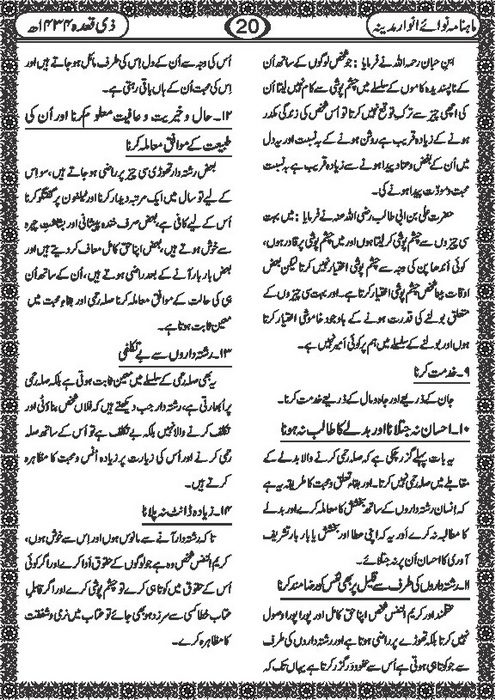 ماہنامہ نوائے انوار مدینہ
20
ذی قعدہ ۱۴۳۴ھ
ابن حبان رحمہ اللہ نے فرمایا : جو شخص لوگوں کے ساتھ اُن
کے ناپسندیدہ کاموں کے سلسلے میں چشم پوشی سے کام نہیں لیتا اُن
کی اچھی چیز سے ترک توقع نہیں کرتا تو اُس شخص کی زندگی مکدر
ہونے کے زیادہ قریب ہے روشن ہونے کے بہ نسبت اور یہ دل
میں اُن کے بغض و عناد پیدا ہونے سے زیادہ قریب ہے بہ نسبت
محبت و مودّت پیدا ہونے کی۔
حضرت علی بن ابی طالب رضی اللہ عنہ نے فرمایا : میں بہت
سی چیزوں سے چشم پوشی کر لیتا ہوں اور میں چشم پوشی پر قادر ہوں،
کوئی اُندھا پن کی وجہ سے چشم پوشی اختیار نہیں کرتا لیکن بعض
اوقات بینا شخص چشم پوشی اختیار کرتا ہے۔ اور بہت سی چیزوں کے
متعلق بولنے کی قدرت ہونے کے باوجود خاموشی اختیار کرتا
ہوں اور بولنے کے سلسلے میں ہم پر کوئی اَمیر نہیں ہے۔
۹۔ خدمت کرنا
جان کے ذریعے اور جاہ و مال کے ذریعے خدمت کرنا۔
۱۰۔ احسان نہ جتلانا اور بدلے کا طالب نہ ہونا
یہ بات پہلے گزر چکی ہے کہ صلہ رحمی کرنے والا بدلے کے
مقابلے میں صلہ رحمی نہیں کرتا۔ اور بقاءِ تعلق و محبت کا طریقہ یہ ہے
کہ انسان رشتہ داروں کے ساتھ بخشش کا معاملہ کرے اور بدلے
کا مطالبہ نہ کرے اَور یہ کہ اپنی عطا اور بخشش یا بار بار تشریف
آوری کا احسان اُن پر نہ جتلائے۔
۱۱۔ رشتہ داروں کی طرف سے قلیل پر بھی نفس کو رضامند کرنا
عقلمند اور کریم النفس شخص اپنا حق کامل اور پورا پورا وصول
نہیں کرتا بلکہ تھوڑے پر راضی ہوتا ہے اور رشتہ داروں کی طرف
سے جو کوتاہی ہوتی ہے اُس سے عفو و درگزر کرتا ہے یہاں تک کہ
اُس کی وجہ سے اُن کے دل اِس کی طرف مائل ہو جاتے ہیں اور
اِس کی محبت اُن کے ہاں باقی رہتی ہے۔
۱۲۔ حال و خیریت و عافیت معلوم کرنا اور اُن کی
طبیعت کے موافق معاملہ کرنا
بعض رشتہ دار تھوڑی سی چیز پر راضی ہو جاتے ہیں، سو اِس
کے لیے تو سال میں ایک مرتبہ دیدار کرنا اور ٹیلیفون پر گفتگو کرنا
اُس کے لیے کافی ہے، بعض صرف خندہ پیشانی اور بشاشتِ چہرہ
سے خوش ہوتے ہیں، بعض اپنا حق کامل معاف کر دیتے ہیں اور
بعض بار بار آنے کے بعد راضی ہوتے ہیں، اُن کے ساتھ اُن
ہی کی حالت کے موافق معاملہ کرنا صلہ رحمی اور بقاءِ محبت میں
معین ثابت ہوتا ہے۔
۱۳۔ رشتہ داروں سے بے تکلفی
یہ بھی صلہ رحمی کے سلسلے میں معین ثابت ہوتی ہے بلکہ صلہ رحمی
پر اُبھارتی ہے، رشتہ دار جب دیکھتے ہیں کہ فلاں شخص بناوٹی اور
تکلف کرنے والا نہیں بلکہ بے تکلف ہے تو اُس کے ساتھ صلہ
رحمی کرنے اور اُس کی زیارت پر زیادہ اُنس و محبت کا مظاہرہ
کرتے ہیں۔
۱۴۔ زیادہ ڈانٹ نہ پلانا
تاکہ رشتہ دار آنے سے مانوس ہوں اور اِس سے خوش ہوں،
کریم النفس شخص وہ ہے جو لوگوں کے حقوق اَدا کرے اور اگر کوئی
اُس کے حقوق میں کوتاہی کرے تو چشم پوشی کرے اور اگر قابلِ
عتاب خطا کسی سے سرزد ہو بھی جائے تو عتاب میں نرمی و شفقت
کا مظاہرہ کرے۔